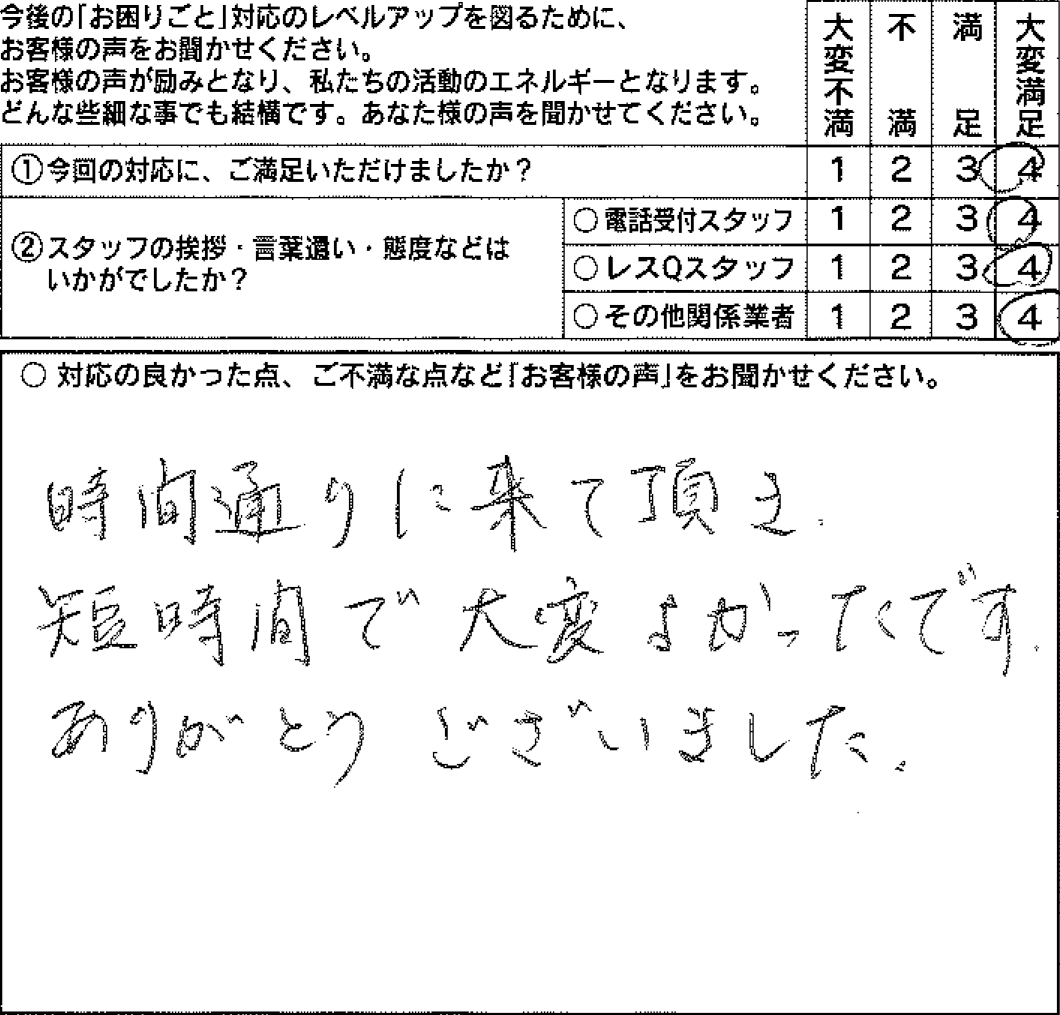 今後の「お困りごと」対応のレベルアップを図るために、
お客様の声をお聞かせください。
お客様の声が励みとなり、私たちの活動のエネルギーとなります。
どんな些細な事でも結構です。あなた様の声を聞かせてください。
大変不満 不満 満足 大変満足
①今回の対応に、ご満足いただけましたか？ 1 2 3 4
②スタッフの挨拶・言葉遣い・態度などは
いかがでしたか？
○電話受付スタッフ 1 2 3 4
○レスQスタッフ 1 2 3 4
○その他関係業者 1 2 3 4
○対応の良かった点、ご不満な点など「お客様の声」をお聞かせください。
時間通りに来て頂き.
短時間で大変よかったです.
ありがとうございました.